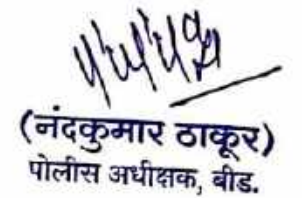 (नंदकुमार ठाकूर)
पोलीस अधीक्षक, बीड.